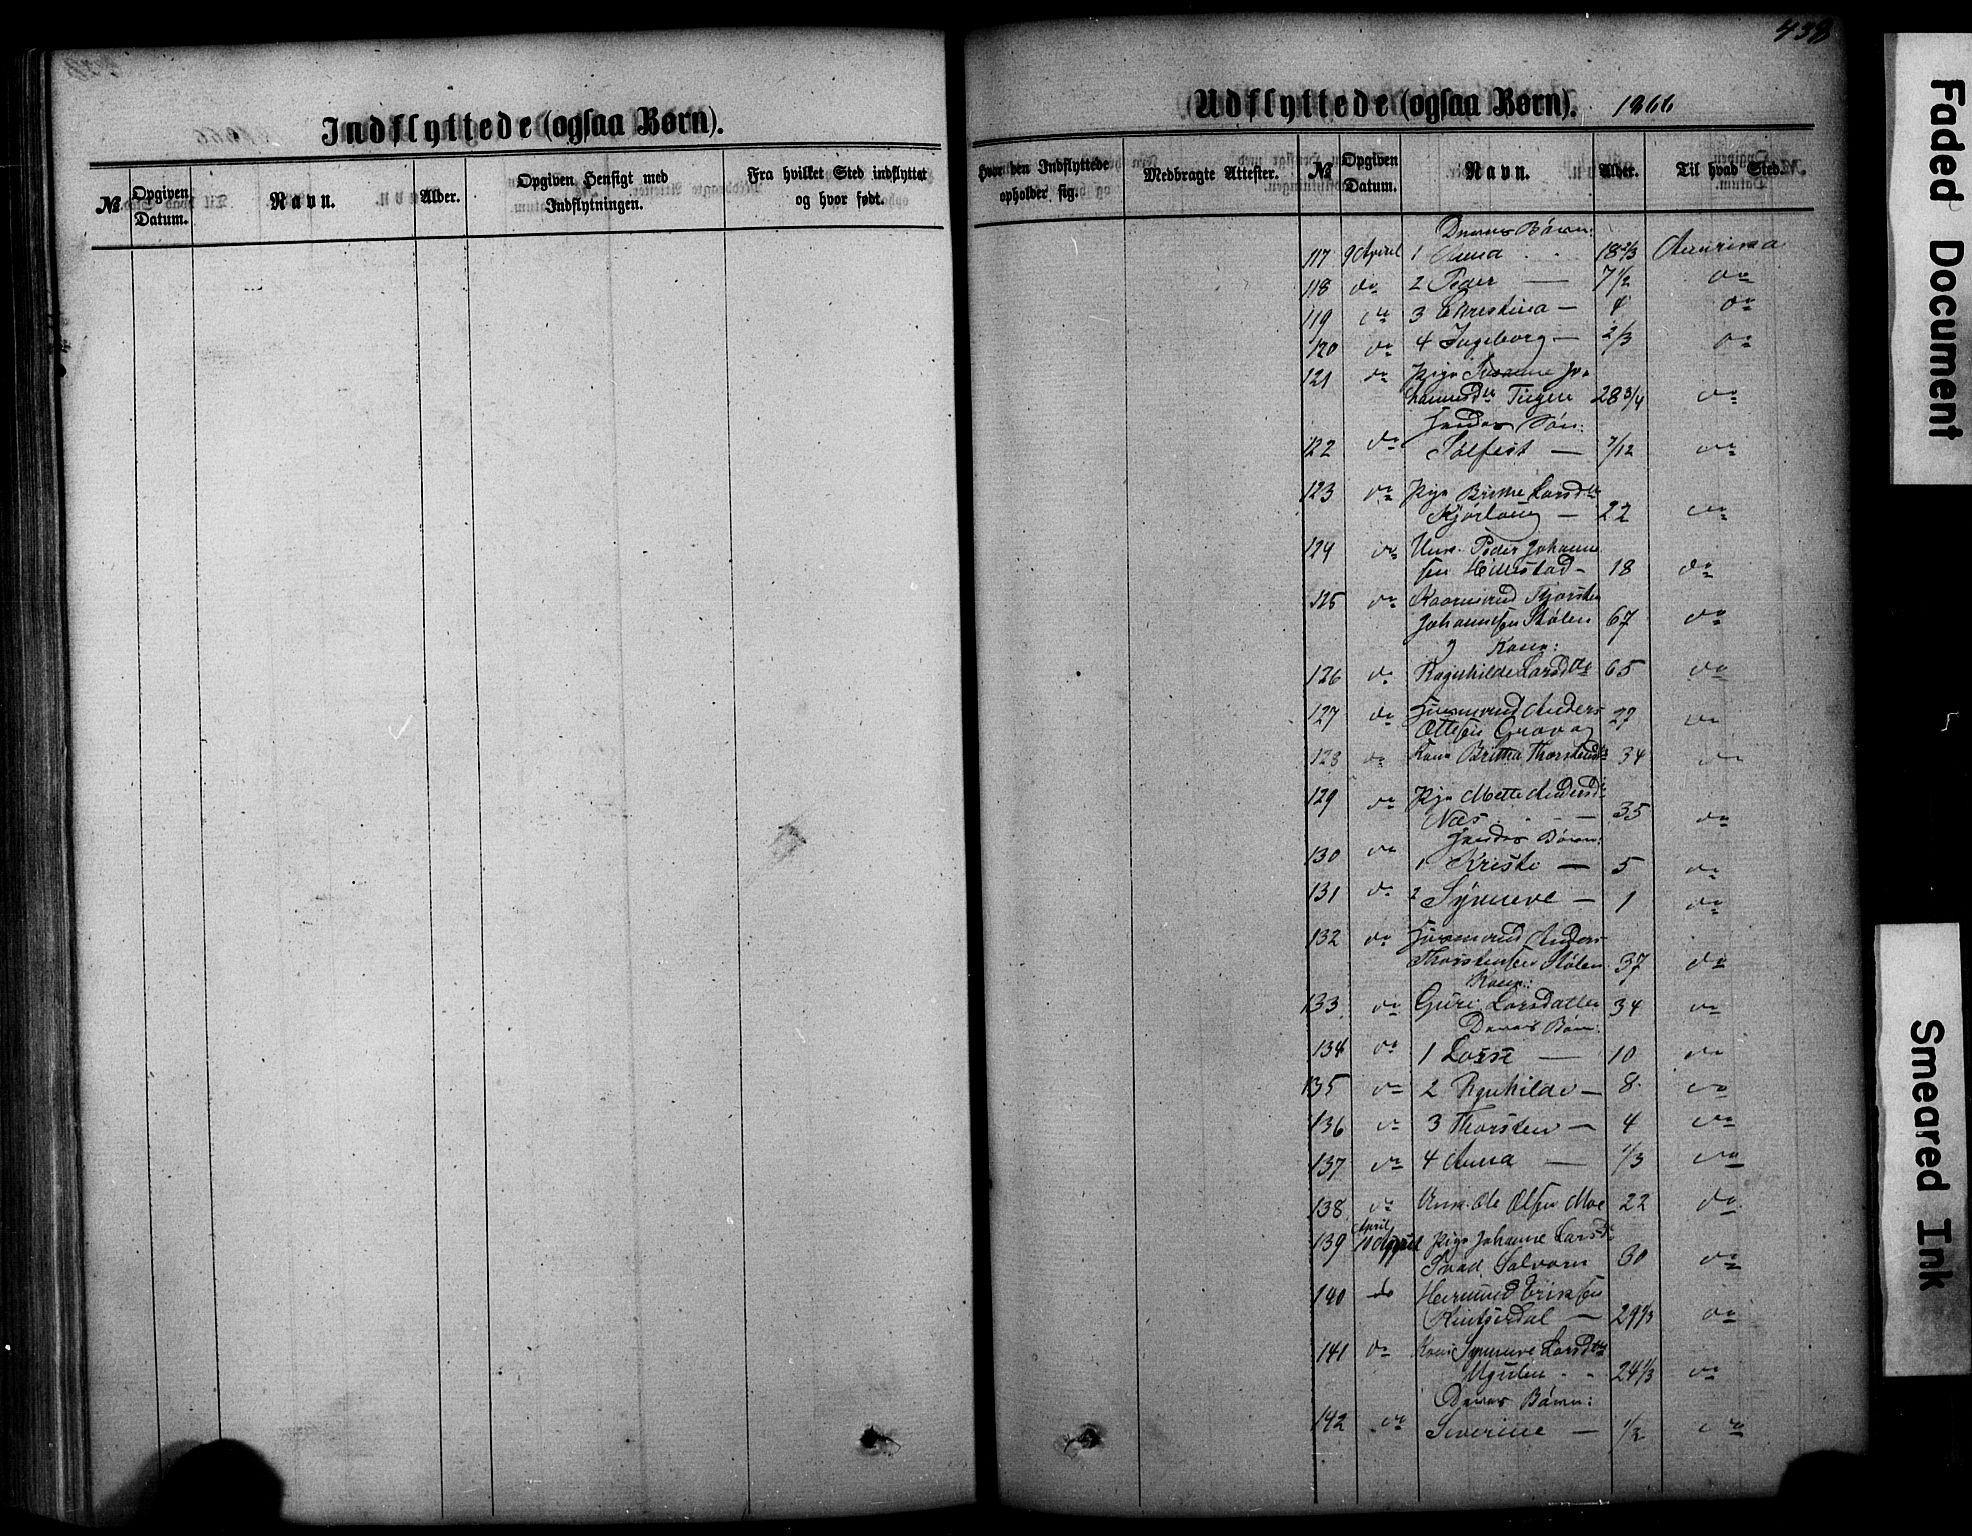 438
Indflyttede (ogsaa Børn).
№
Opgiven Datum.
Navn.
Alder.
Opgiven Hensigt med Indflytningen.
Fra hvilket Sted indflyttet og hvor født.
Udflyttede (ogsaa Børn). 1866
Hvor den Indflyttede opholder sig.
Medbragte Attester.
№
Opgiven Datum.
Navn.
Alder.
Til hvad Sted.
Deres Børn:
117 9 April 1 Anna 18 2/3 Amerika
118 do 2 Peder — 7 1/2 do
119 do 3 Christina — do
120 do 4 Ingeborg — 2/3 do
121 do Pige Jo-
hannesdtr 28 3/4 do
Hendes Søn:
122 do Tolfest — 7/12 do
123 do Pige Brithe Larsdtr
— 22 do
124 do Unk. Peder Johanne
sen — 18 do
125 do Kaarmand Thorsten
Johannesen Stølen 67 do
Kone:
126 do Ragnhilde Larsdtr 65 do
127 do Huusmand Anders
Ottesen 27 do
128 do Kone Britha Thorstensdr 34 do
129 do Pige Mette Andersdr
Næs — 35 do
Hendes Børn:
130 do 1 Kristi — 5 do
131 do 2 Synneve — 1 do
132 do Huusmand Anders
Thorstensen Stølen 37 do
Kone:
133 do Guri Larsdatter 34 do
Deres Børn:
134 do 1 Lasse — 10 do
135 do 2 Ragnhilde — 8 do
136 do 3 Thorsten — 4 do
137 do 4 Anna — 1/3 do
138 do Unk. Ole Olsen Moe 22 do
April
139 10 April Pige Johanne Larsdr
Solvorn 30 do
140 do Hermund Eriksen
Kintzedal — 29 1/3 do
141 do Kone Synneve Larsdtr
24 1/3 do
Deres Børn:
142 do Severine — 1/2 do
Faded Document
Smeared Ink